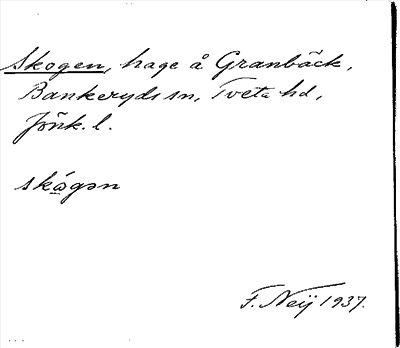 Skogen, hage å Granbäck,
Bankeryds sn, Tveta hd,
Jönk. l.
skógən
F. Neij 1937.